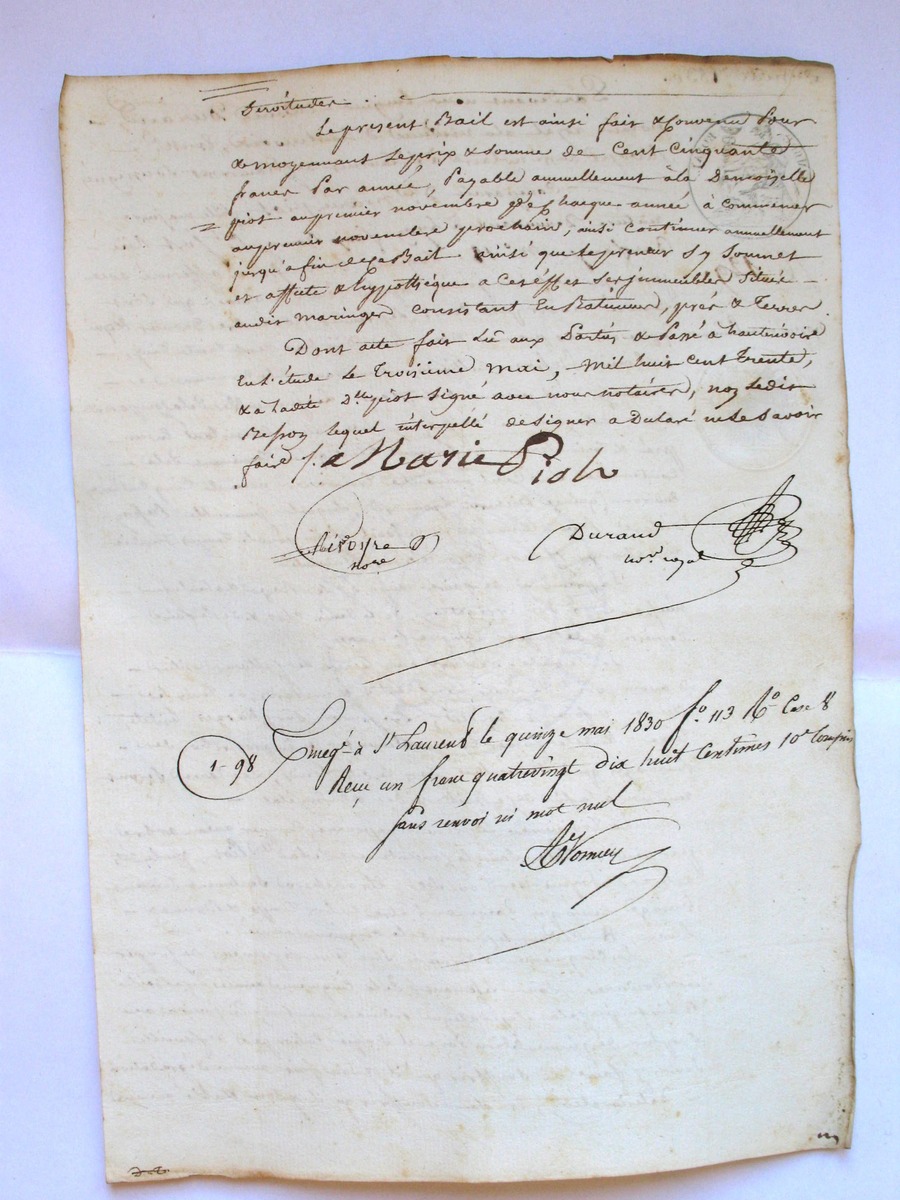 Servitudes.
Le present Bail est ainsi fait & Convenu pour
& moyennant Le prix & somme de Cent Cinquante
francs Par année, Payable annuellement à la Demoiselle
piot au premier novembre de Chaque année à Commencer
au premier novembre prochain, ainsi Continuer annuellement
jusqu'à fin de ce Bail ainsi que le preneur s'y soumet
et affecte & hyppothéque a cet éffet ses jmmeubles situés
audit maringes Consistant En Batiments, prés & Terres.
Dont acte fait Lû aux Parties & Passé à hauterivoire
En L'étude Le Troisième mai, mil huit cent Trente,
& a Ladite Dlle piot Signé avec nous notaires, non Ledit
Besson lequel interpellé de signer a Déclaré ne Le Savoir
faire /. a Marie Piot
Rivoyre
nore
Durand
nore royal
1-98 Enregé à St Laurent le quinze mai 1830 fo. 113 Ro Case 8
Reçu un franc quatrevingt dix huit Centimes 10e Compris
sans renvoi ni mot nul